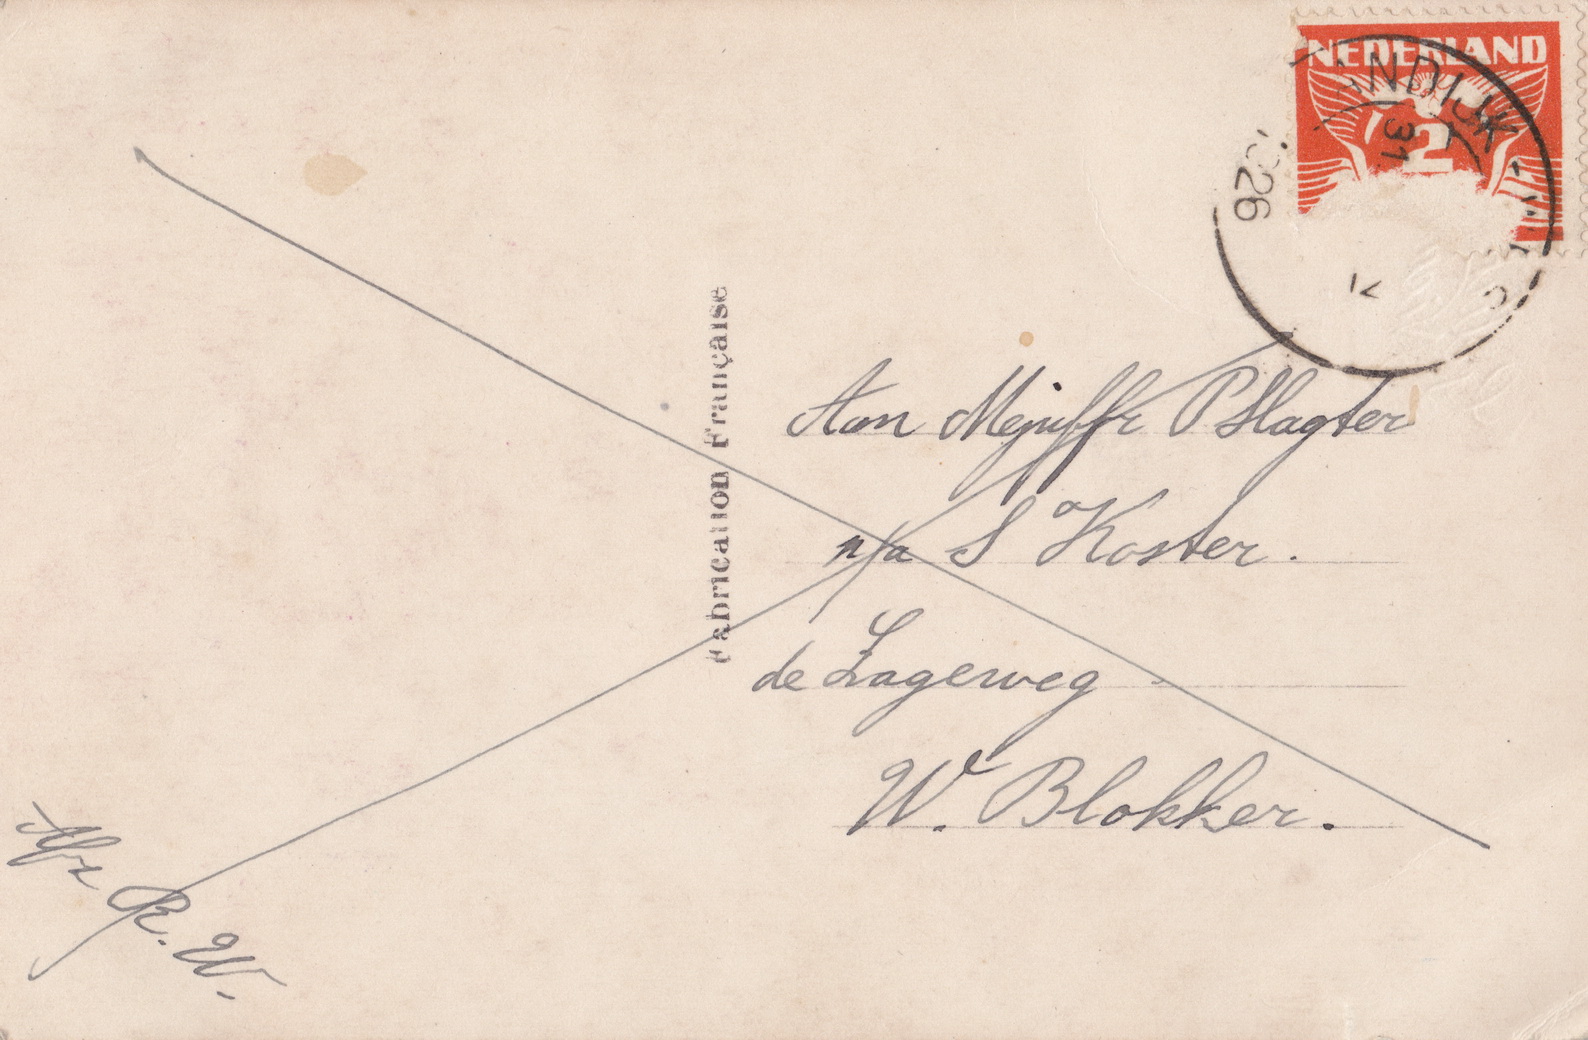 NEDERLAND
ANDIJK
31
2
1926
IV
Fabrication Française
Aan Mejuffr P Slagter
p/a S Koster.
de Lageweg
W. Blokker.
Afz R. W.